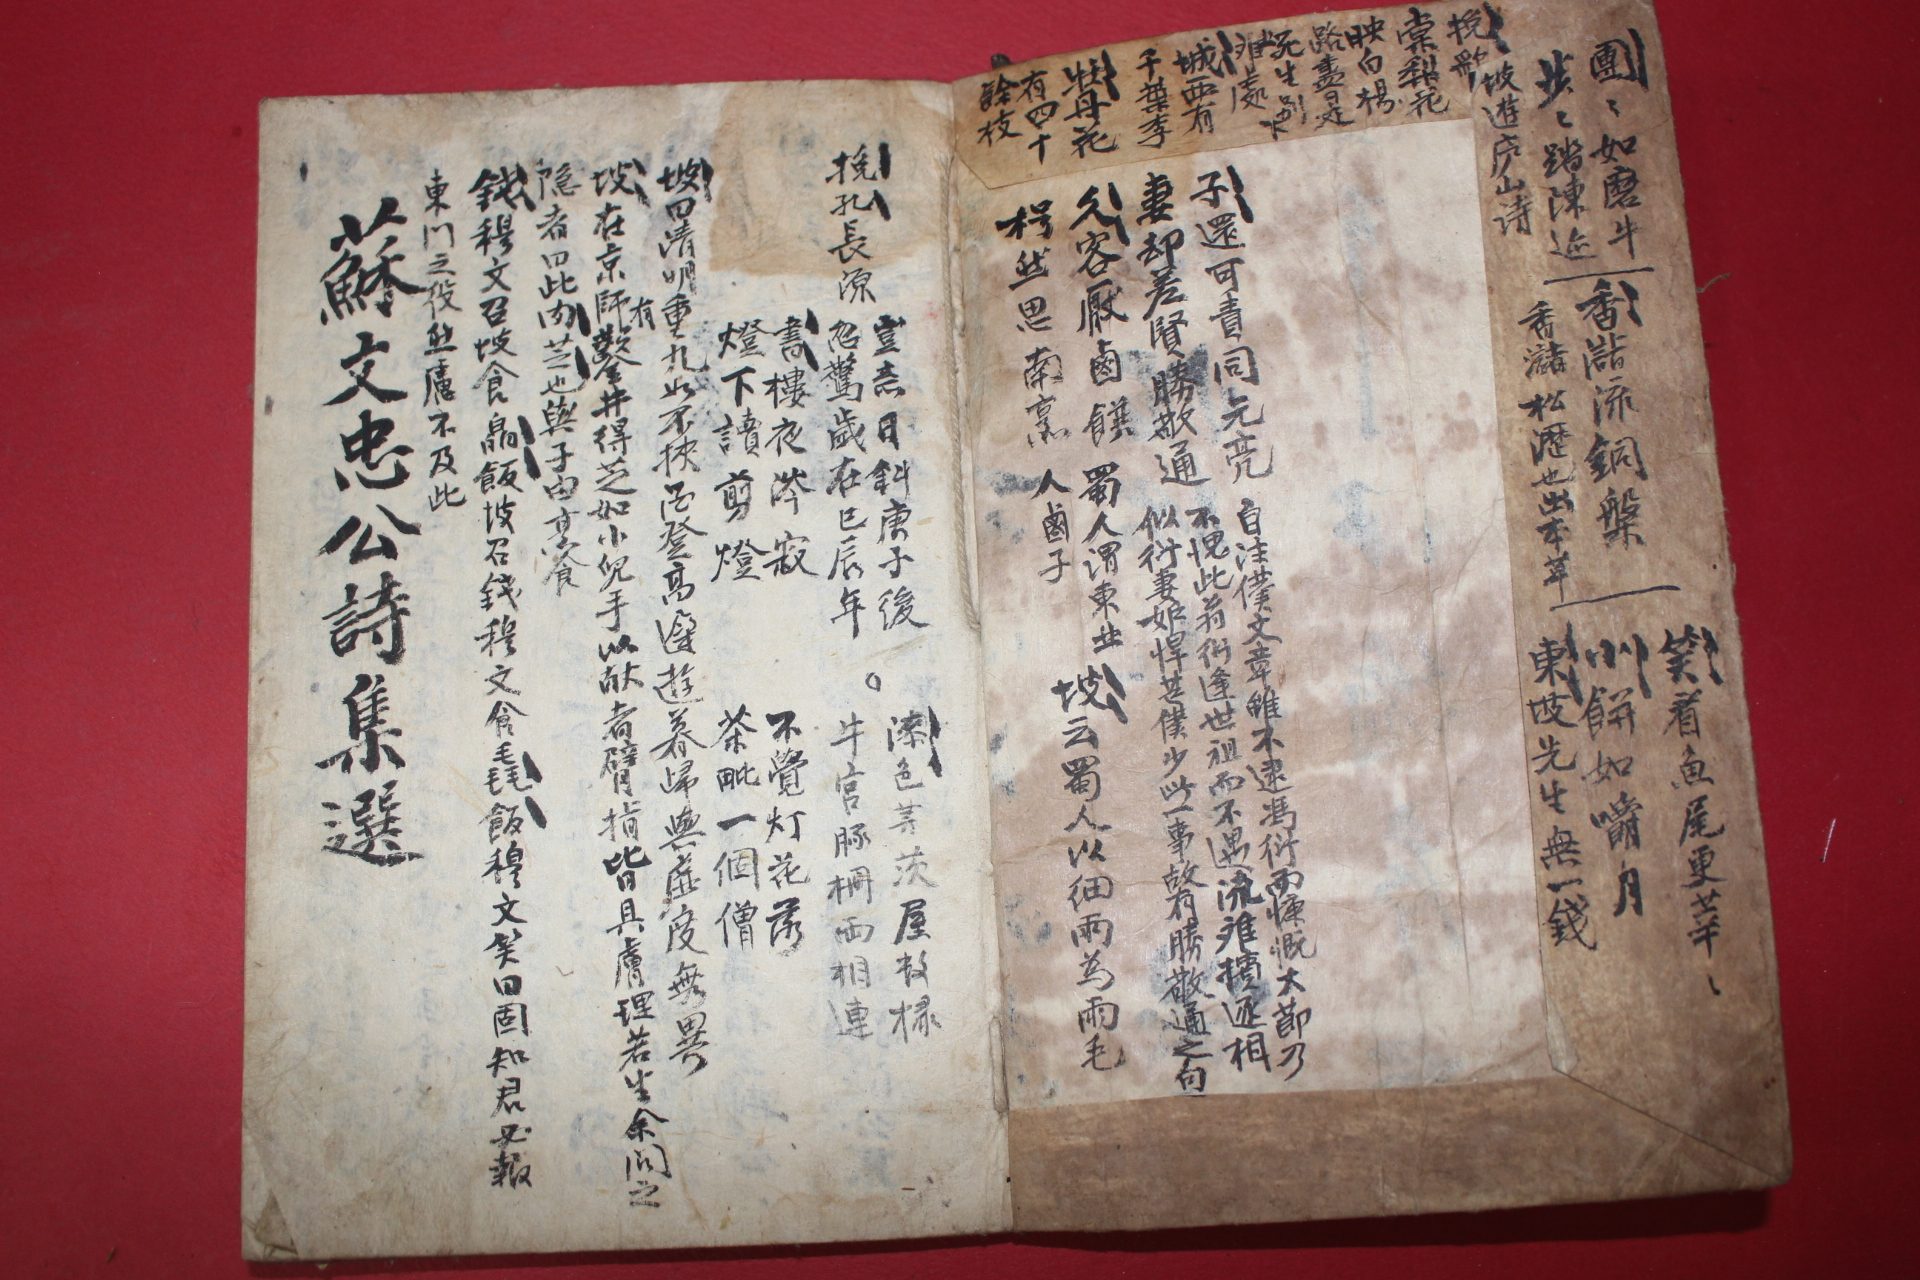 團〻如磨牛
步〻踏陳迹
坡遊庐山詩
挽歌
棠梨花
映白楊
路盡是
死生別
难處
城西有
千葉李
牡丹花
有四十
餘枝
香流銅槃
香松瀝也出本草
笑着魚尾更莘〻
小餅如嚼月
東坡先生無一錢
子還可責同元亮
妻却差賢勝敬通
自注僕文章雖不逮馮衍而慷慨大節乃
不愧此翁衍逢世祖而不遇流难擯逐相
似衍妻妬悍甚僕少此一事故有勝敬通之句
久客厭鹵饌
枵然思南烹
蜀人謂東北
人鹵子
坡云蜀人以細雨為雨毛
挽孔長源
豈意日斜庚子後
忽驚歲在巳辰年
漆色茅茨屋数椽
牛宮豚柵両相連
書樓夜涔寂
燈下讀剪燈
不覺灯花落
茶毗一個僧
坡曰清明重九必不挾酒登高邊遊暮歸與虛度無異
坡在京師有鑿井得芝如小児手以献者臂指皆具膚理若生余闻之
隐者曰此肉芝也與子由烹食
錢穆文召坡食皛飯坡召錢穆文食毳飯穆文笑曰固知君必報
東門之役然慮不及此
蘇文忠公詩集選